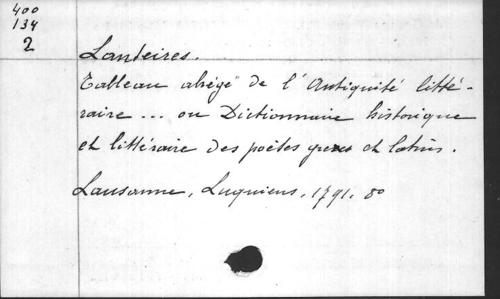 400
134
2
Lanteires.
Tableau abrégé de l'Antiquité litté-
raire ... ou Dictionnaire historique
et littéraire des poètes grecs et latins.
Lausanne, Luquiens, 1791. 8o